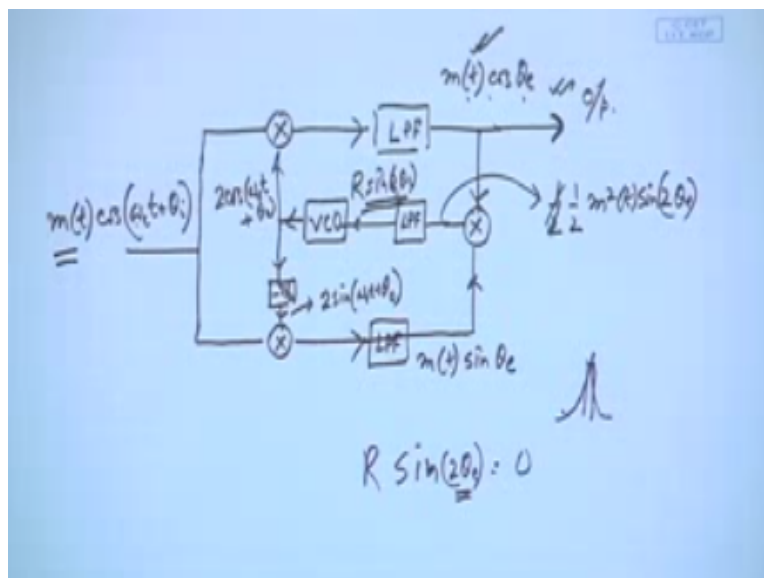 m(t) cos θe
o/p.
LPF
2cos(ωct + θo)
R sin(2θe)
m(t) cos(ωct + θi)
VCO
LPF
1/2 m²(t) sin(2θe)
2 sin(ωct + θo)
LPF
m(t) sin θe
R sin(2θe) = 0